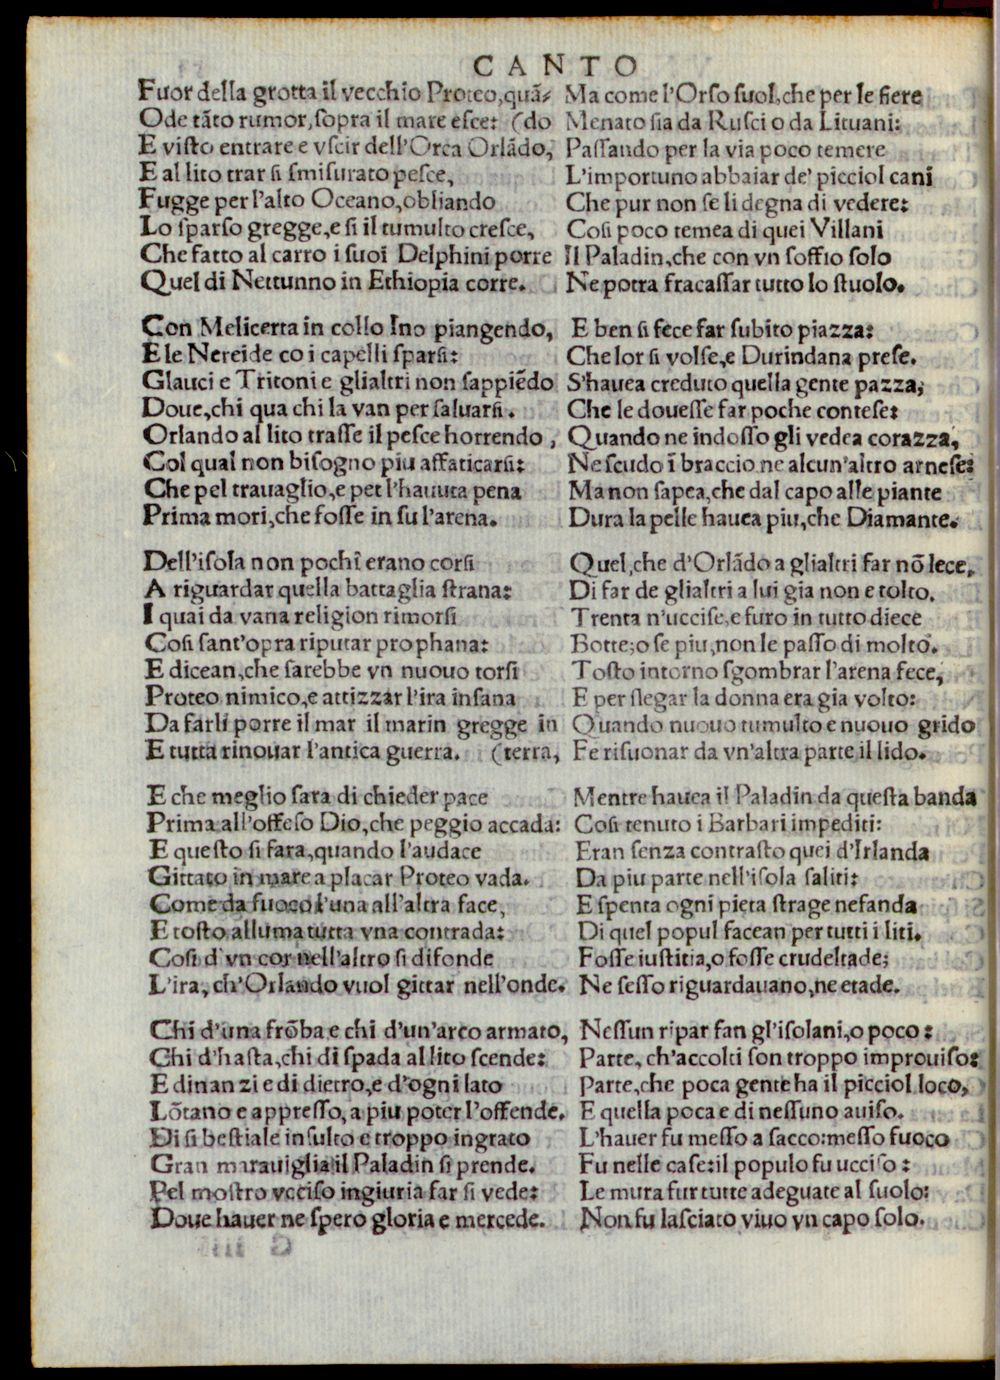 CANTO
Fuor della grotta il vecchio Proteo,quã-
Ode tãto rumor,sopra il mare esce: (do
E visto entrare e vscir dell'Orca Orlãdo,
E al lito trar si smisurato pesce,
Fugge per l'alto Oceano,obliando
Lo sparso gregge,e si il tumulto cresce,
Che fatto al carro i suoi Delphini porre
Quel di Nettunno in Ethiopia corre.
Con Melicerta in collo Ino piangendo,
E le Nereide co i capelli sparsi:
Glauci e Tritoni e glialtri non sappiẽdo
Doue,chi qua chi la van per saluarsi.
Orlando al lito trasse il pesce horrendo,
Col qual non bisogno piu affaticarsi:
Che pel trauaglio,e pet l'hauuta pena
Prima mori,che fosse in su l'arena.
Dell'isola non pochi erano corsi
A riguardar quella battaglia strana:
I quai da vana religion rimorsi
Cosi sant'opra riputar prophana:
E dicean,che sarebbe vn nuouo torsi
Proteo nimico,e attizzar l'ira insana
Da farli porre il mar il marin gregge in
E tutta rinouar l'antica guerra. (terra,
E che meglio sara di chieder pace
Prima all'offeso Dio,che peggio accada:
E questo si fara,quando l'audace
Gittato in mare a placar Proteo vada.
Come da fuoco l'una all'altra face,
E tosto alluma tutta vna contrada:
Cosi d'vn cor nell'altro si difonde
L'ira, ch'Orlando vuol gittar nell'onde.
Chi d'una frõba e chi d'un'arco armato,
Chi d'hasta,chi di spada al lito scende:
E dinanzi e di dietro,e d'ogni lato
Lõtano e appresso, a piu poter l'offende.
Di si bestiale insulto e troppo ingrato
Gran marauiglia il Paladin si prende.
Pel mostro vcciso ingiuria far si vede:
Doue hauer ne spero gloria e mercede.
Ma come l'Orso suol,che per le fiere
Menato sia da Rusci o da Lituani:
Passando per la via poco temere
L'importuno abbaiar de' picciol cani
Che pur non se li degna di vedere:
Cosi poco temea di quei Villani
Il Paladin,che con vn soffio solo
Ne potra fracassar tutto lo stuolo.
E ben si fece far subito piazza:
Che lor si volse,e Durindana prese.
S'hauea creduto quella gente pazza,
Che le douesse far poche contese:
Quando ne indosso gli vedea corazza,
Ne scudo ĩ braccio ne alcun'altro arnese:
Ma non sapea,che dal capo alle piante
Dura la pelle hauea piu,che Diamante.
Quel,che d'Orlãdo a glialtri far nõ lece,
Di far de glialtri a lui gia non e tolto.
Trenta n'uccise,e furo in tutto diece
Botte;o se piu,non le passo di molto.
Tosto intorno sgombrar l'arena fece,
E per slegar la donna era gia volto:
Quando nuouo tumulto e nuouo grido
Fe risuonar da vn'altra parte il lido.
Mentre hauea il Paladin da questa banda
Cosi tenuto i Barbari impediti:
Eran senza contrasto quei d'Irlanda
Da piu parte nell'isola saliti:
E spenta ogni pieta strage nefanda
Di quel popul facean per tutti i liti.
Fosse iustitia,o fosse crudeltade;
Ne sesso riguardauano,ne etade.
Nessun ripar fan gl'isolani,o poco:
Parte, ch'accolti son troppo improuiso:
Parte,che poca gente ha il picciol loco,
E quella poca e di nessuno auiso.
L'hauer fu messo a sacco:messo fuoco
Fu nelle case:il populo fu ucciso:
Le mura fur tutte adeguate al suolo:
Non fu lasciato viuo vn capo solo.